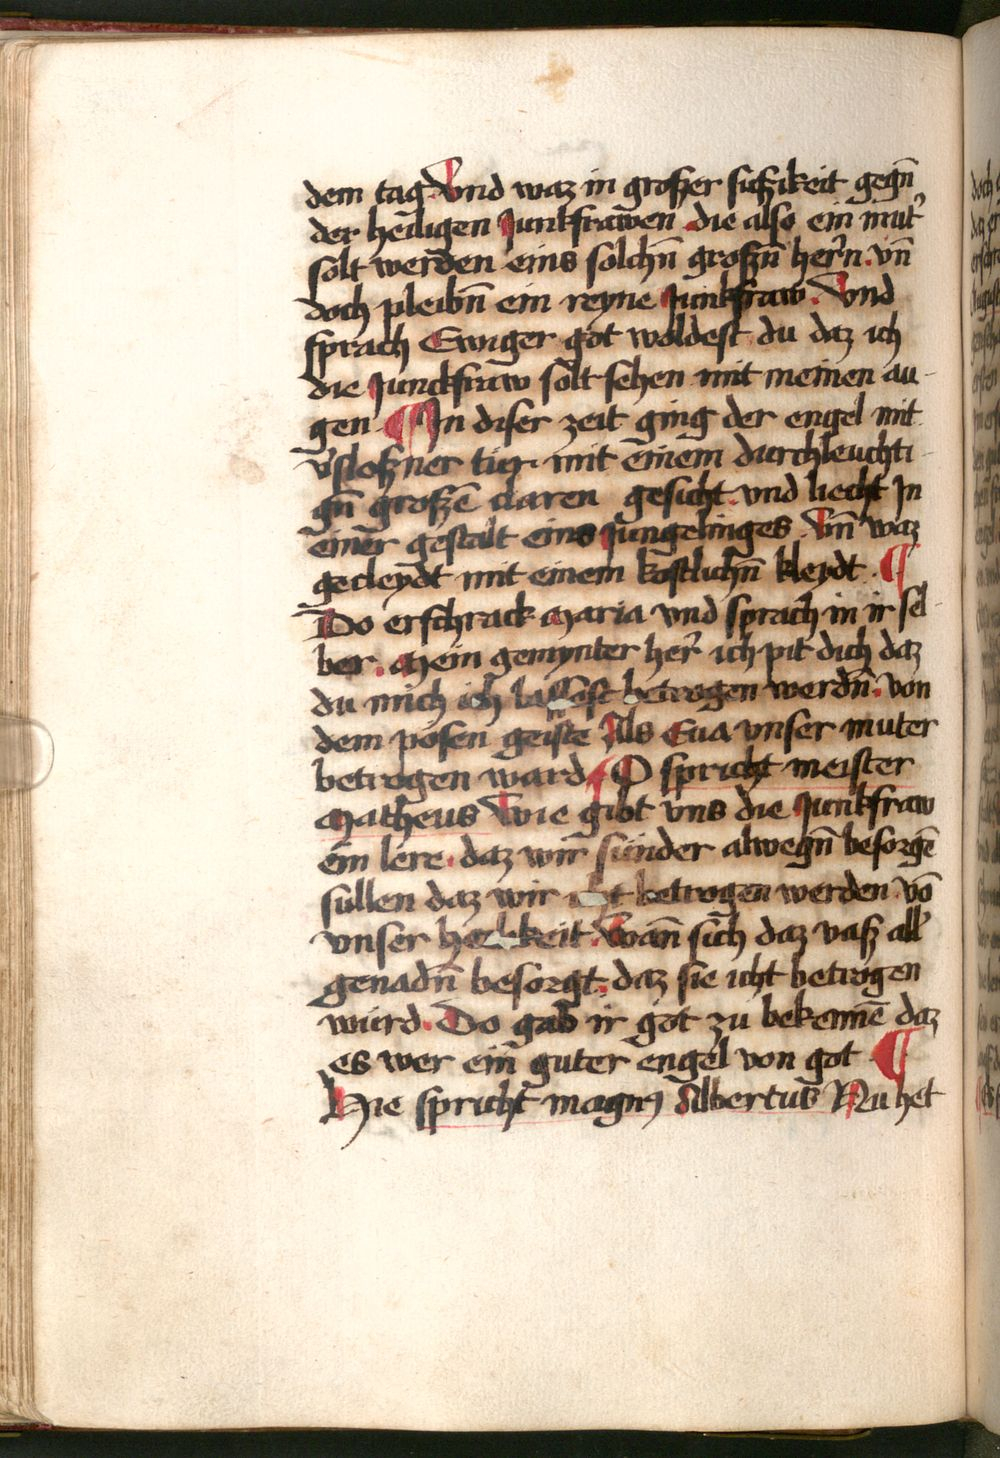 dem tag. Vnd waz in großer sußikeit gegn̄
der heiligen Junkfrawen die also ein mut'
solt werden eins solchn̄ großn̄ her'n. vn̄
doch pleibn̄ ein reyne Junkfraw. Vnd
sprach Ewiger got woldest du daz ich
die Junckfraw solt sehen mit meinen au-
gen ¶ In diser zeit ging der engel mit
v'sloßner tür mit einem durchleuchti-
gn̄ großē claren gesicht vnd liecht In
einer gestalt eins Jungelinges. Vn̄ waz
gecleydt mit einem kostlichn̄ kleydt. ¶
Do erschrack Maria vnd sprach in ir sel-
ber. Mein gemynter her' ich pit dich daz
du mich icht lassest betrogen werdn̄. von
dem posen geiste Als Eua vnser muter
betrogen ward ¶ O spricht meister
Matheus Wie gibt vns die Junkfraw
ein lere. daz wir sunder alwegn̄ besorgē
sullen daz wir icht betrogen werden vō
vnser keit. Wann sich daz vaß all'
genadn̄ besorgt. daz sie icht betrogen
wurd. Do gab ir got zu bekennē daz
es wer ein guter engel von got. ¶
Hie spricht magn9 Albertus Nu het